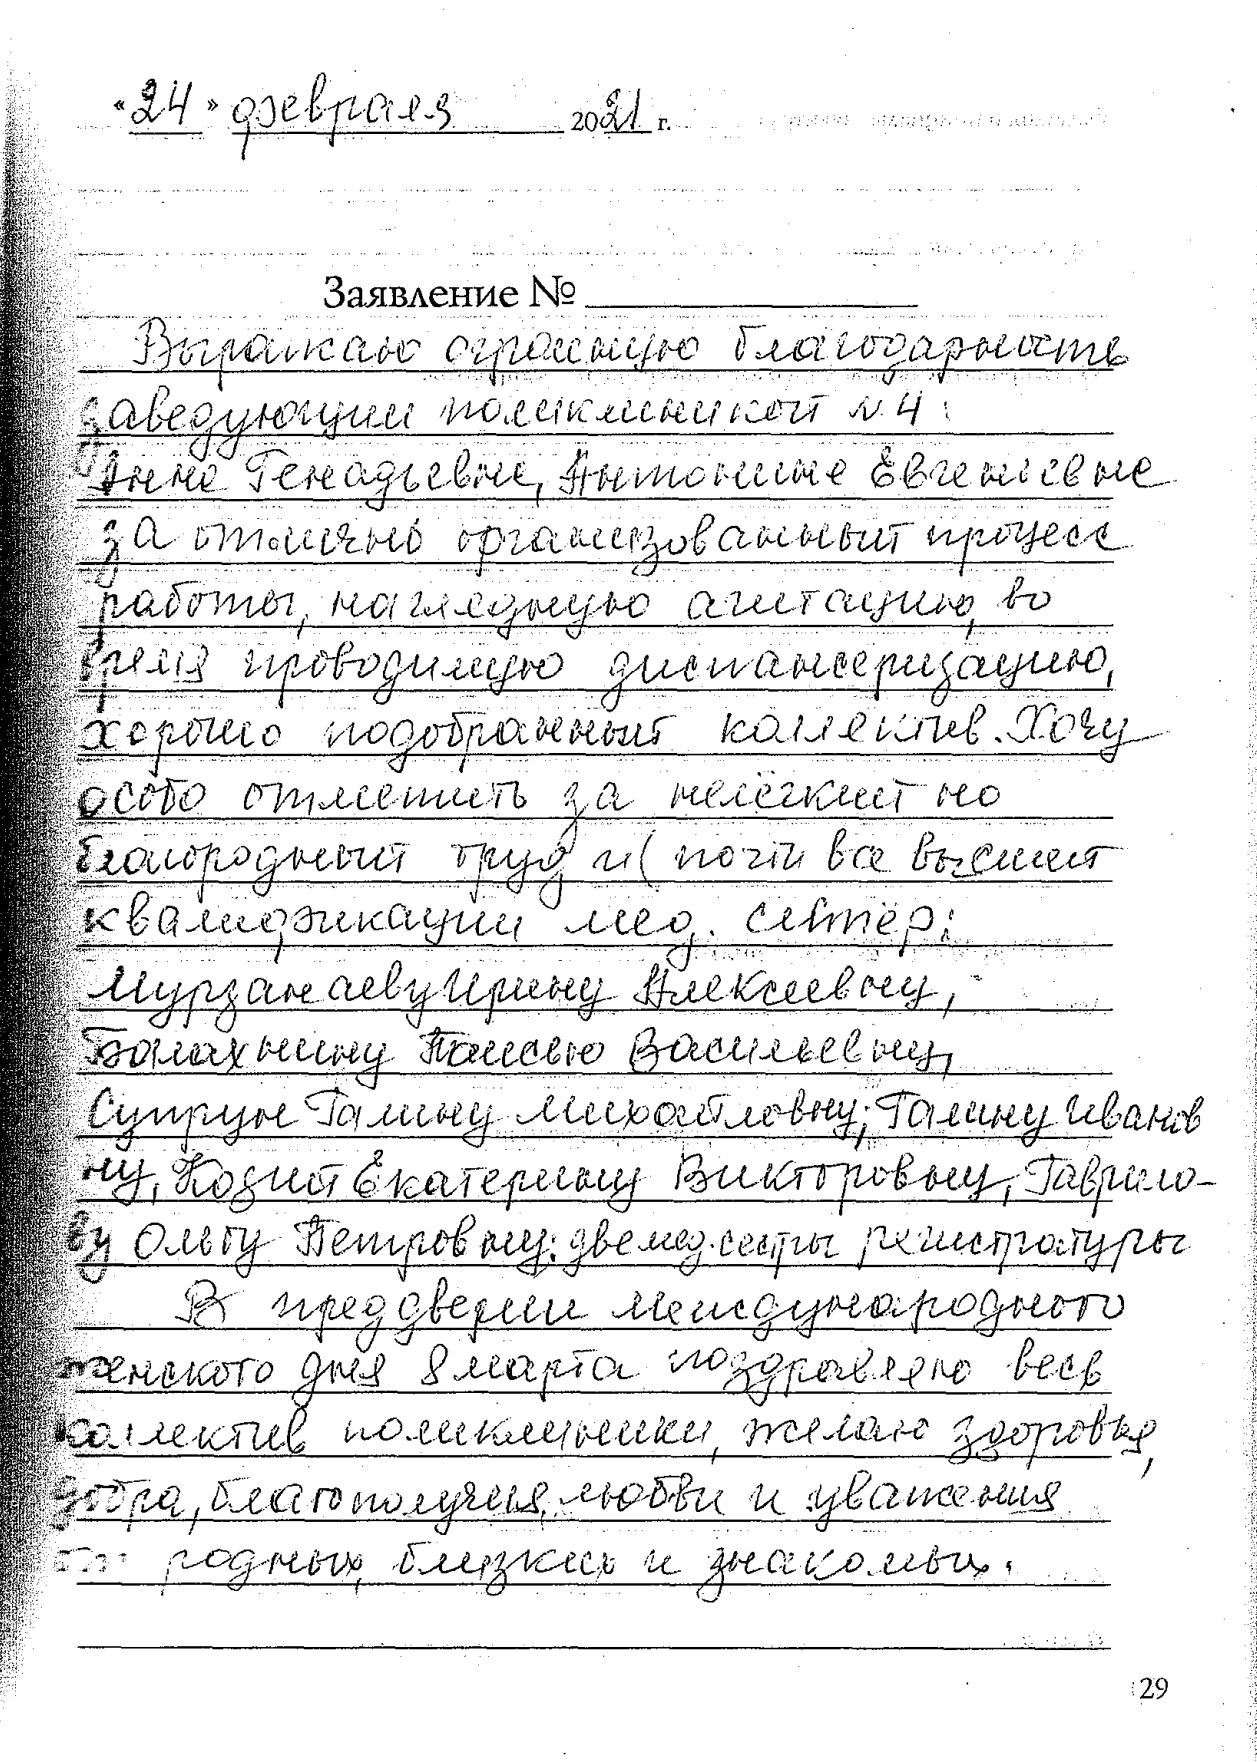 «24» февраля 2021 г.
Заявление №
Выражаю огромную благодарность
заведующим поликлиникой N 4:
Анне Генадьевне, Антонине Евгеньевне
за отлично организованный процесс
работы, наглядную агитацию, во
время проводимую диспансеризацию,
хорошо подобранный коллектив. Хочу
особо отметить за нелёгкий но
благородный труд и (почти все высшей
квалификации мед. сестёр:
Мурзанаеву Ирину Алексеевну,
Балахнину Таисью Васильевну,
Супрун Галину Михайловну; Галину Иванов
ну, Козий Екатерину Викторовну, Гаврило-
ву Ольгу Петровну; две мед. сестры регистратуры
В преддверии международного
женского дня 8 марта поздравляю весь
коллектив поликлиники, желаю здоровья,
добра, благополучия, любви и уважения
от родных, близких и знакомых.
29